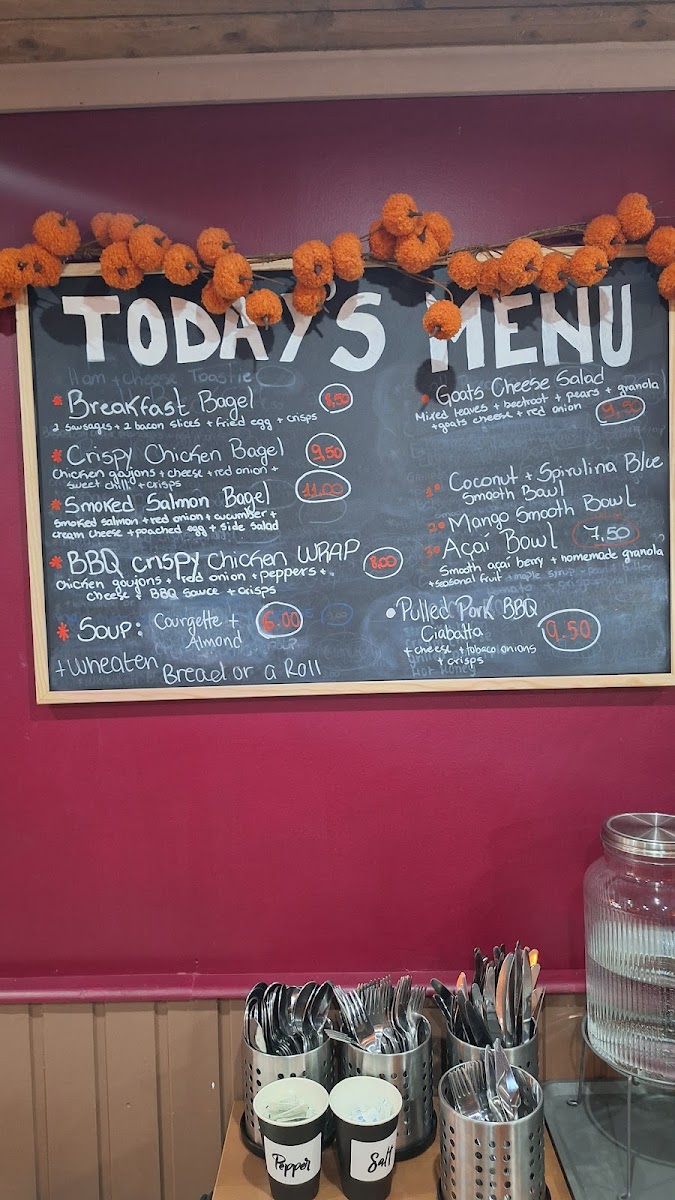 TODAY'S MENU
Ham + Cheese Toastie
* Breakfast Bagel 8,50
2 sausages + 2 bacon slices + fried egg + crisps
* Crispy Chicken Bagel 9,50
Chicken goujons + cheese + red onion +
sweet chilli + crisps
* Smoked Salmon Bagel 11.00
Smoked salmon + red onion + cucumber +
cream cheese + poached egg + side salad
* BBQ crispy chicken WRAP 8,00
Chicken goujons + red onion + peppers +
cheese & BBQ sauce + crisps
* SOUP: Courgette + 6.00
Almond
+ Wheaten Bread or a Roll
• Goats Cheese Salad
Mixed leaves + beetroot + pears + granola
+ goats cheese + red onion 9,50
1º Coconut + Spirulina Blue
Smooth Bowl
2º Mango Smooth Bowl
3º Açaí Bowl 7,50
Smooth açaí berry + homemade granola
+ seasonal fruit + maple
• Pulled Pork BBQ
Ciabatta 9.50
+ cheese + tobaco onions
+ crisps
Hot Honey
Pepper
Salt